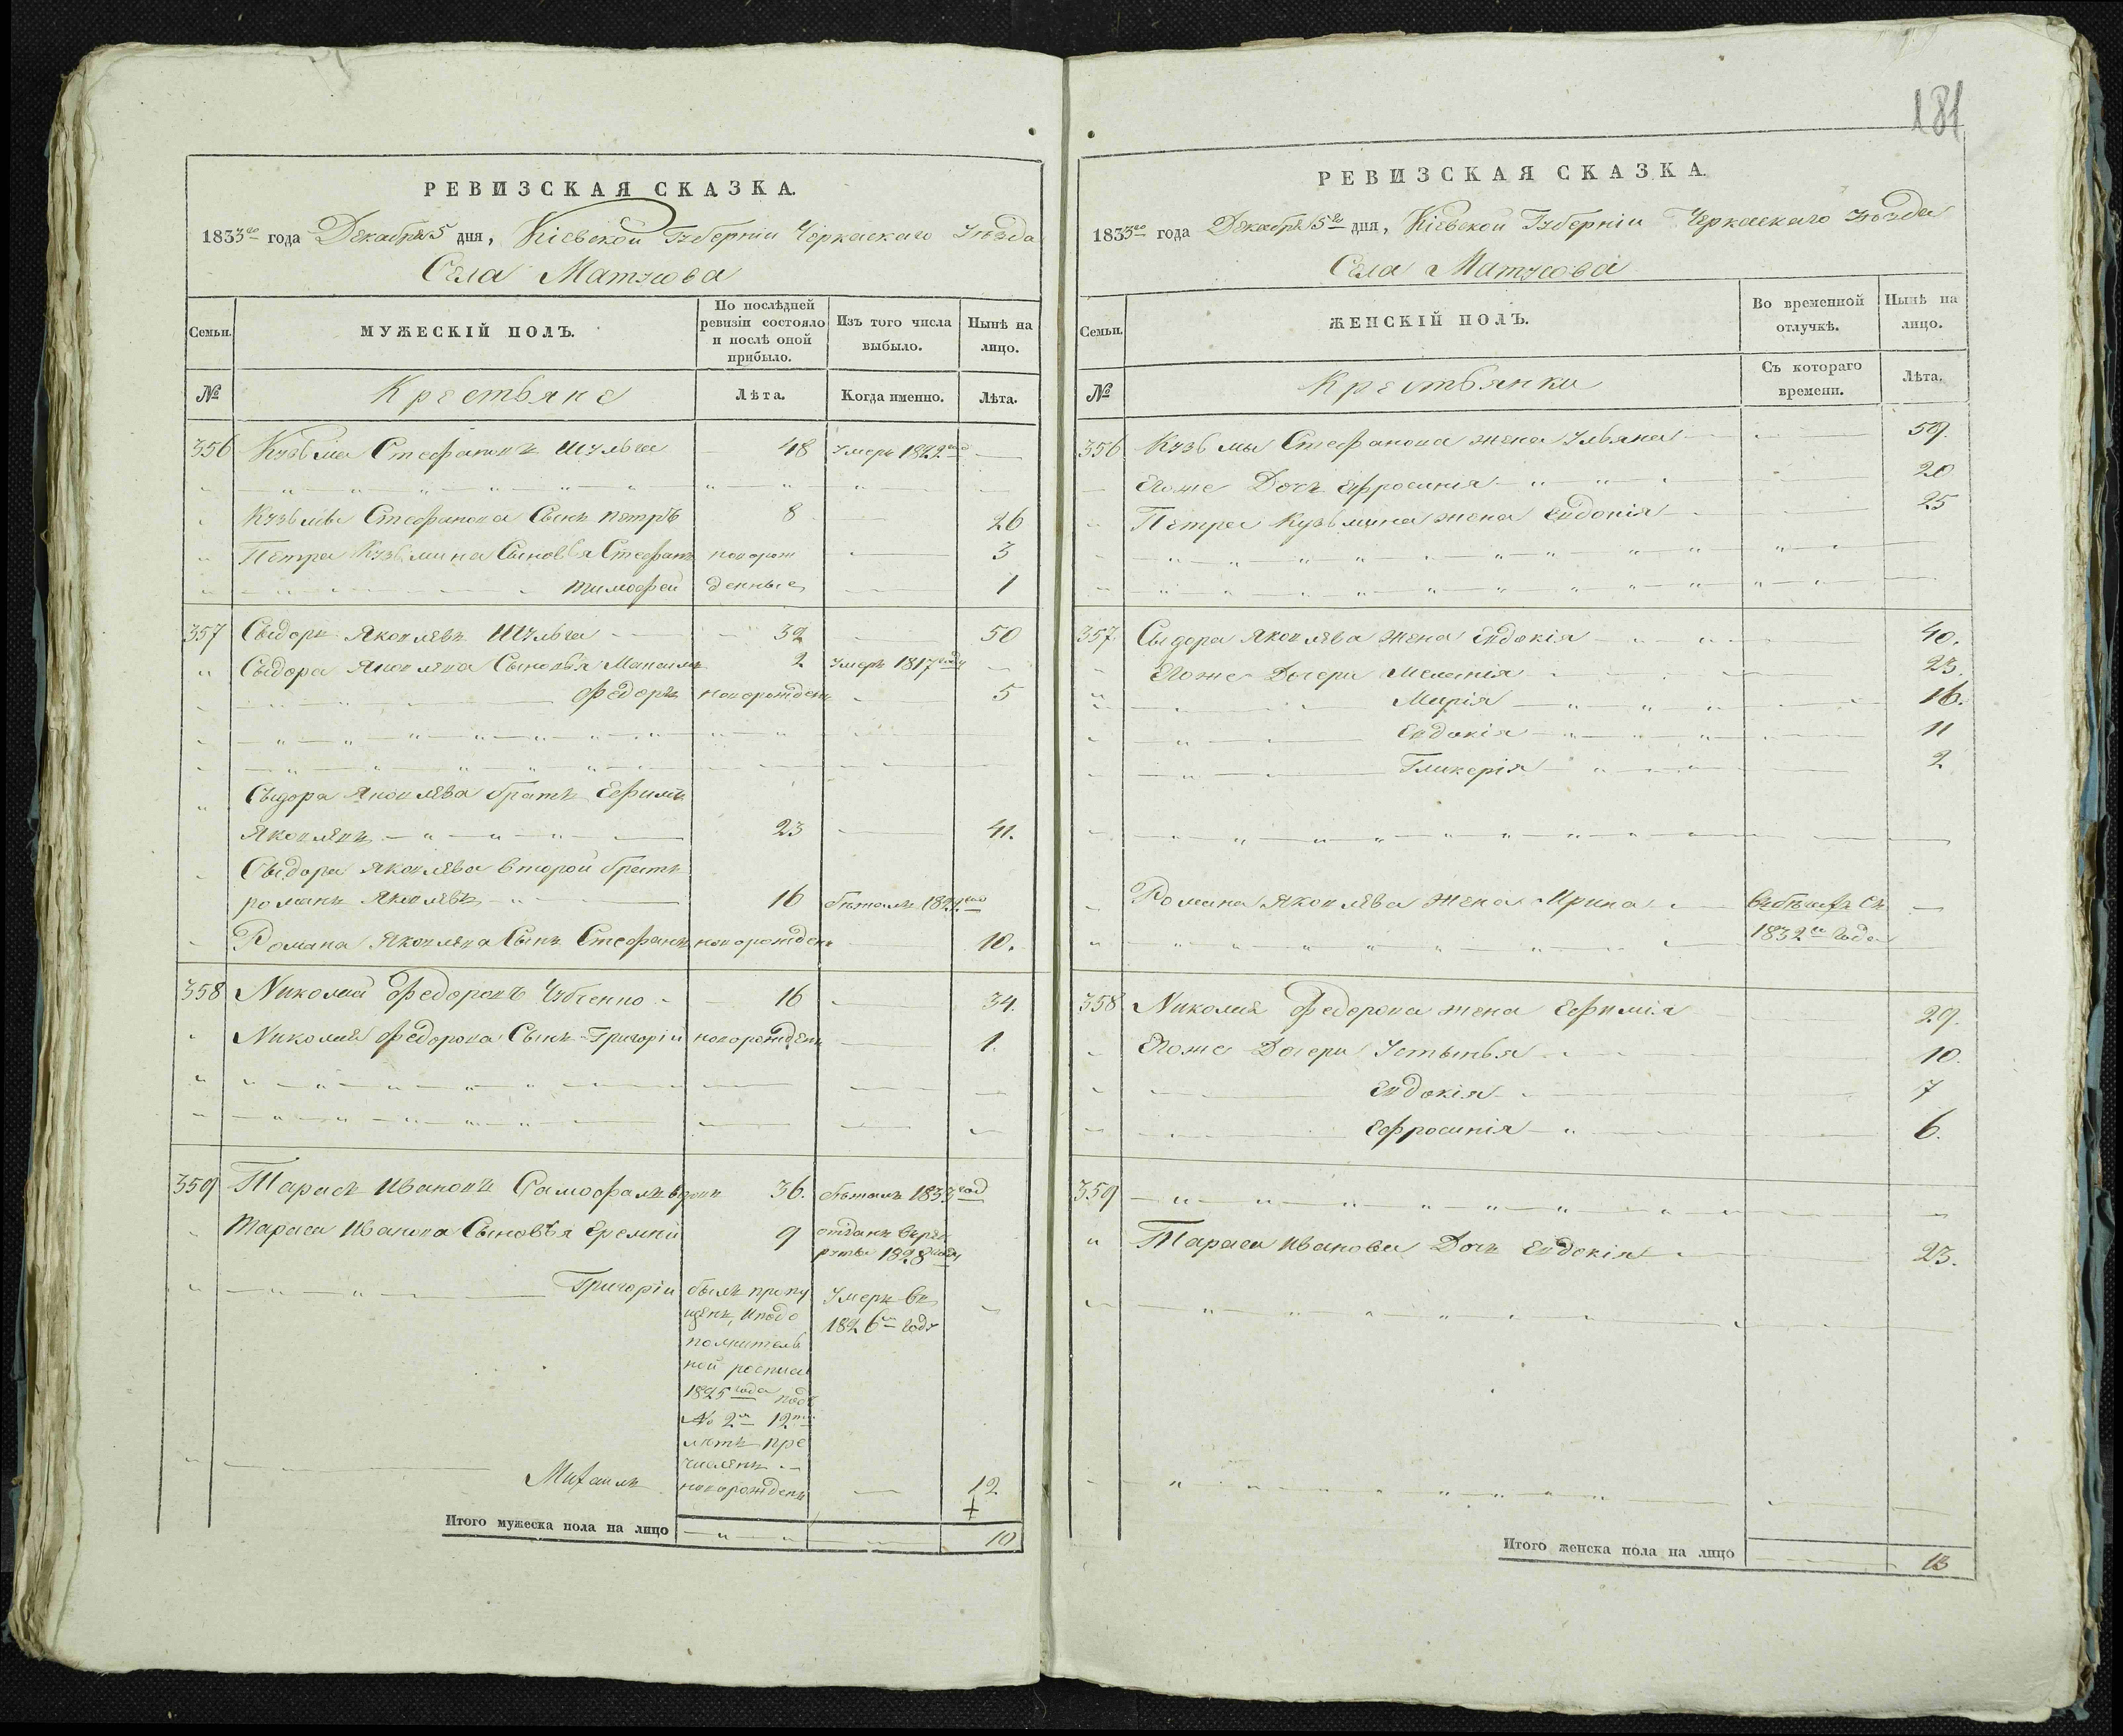 РЕВИЗСКАЯ СКАЗКА.
1833го года Декабря 5 дня, Кіевской Губерніи Черкаскаго Уѣзда
Села Матусова
Семьи.
МУЖЕСКІЙ ПОЛЪ.
По послѣдней ревизіи состояло и послѣ оной прибыло.
Изъ того числа выбыло.
Нынѣ на лицо.
№
Крестьяне
Лѣта.
Когда именно.
Лѣта.
356 Кузьма Стефановъ Шульга 48 Умеръ 1822 год
Кузьмы Стефанова Сынъ Петръ 8 26
Петра Кузьмина Сыновья Стефанъ новорож 3
Тимофей денные 1
357 Сыдоръ Яковлевъ Шульга 32 50
Сыдора Яковлева Сыновья Максимъ 2 Умеръ 1817 году
Федоръ новорожденъ 5
Сыдора Яковлева братъ Ефимъ
Яковлевъ 23 41.
Сыдора Яковлева второй братъ
романъ Яковлевъ 16 бѣжалъ
Романа Яковлева Сынъ Стефанъ новорожденъ 10.
358 Николай Федоровъ Чубенко 16 34.
Николая Федорова Сынъ Григорій новорожденъ 1.
359 Тарасъ Ивановъ 36. бѣжалъ 1833 год
Тараса Иванова Сыновья Еремѣй 9 отданъ въ рек
руты 1828 году
Григорій былъ пропу Умеръ въ
щенъ, и по до 1826м году
полнитель
ной росписи
1825 года подъ
№ 2м 12ти
лѣтъ при
численъ
Михаилъ новорожденъ 12
Итого мужеска пола на лицо 10
181
РЕВИЗСКАЯ СКАЗКА.
1833го года Декабря 5го дня, Кіевской Губерніи Черкаскаго Уѣзда
Села Матусова
Семьи.
ЖЕНСКІЙ ПОЛЪ.
Во временной отлучкѣ.
Нынѣ на лицо.
№
Крестьянки
Съ котораго времени.
Лѣта.
356 Кузьмы Стефанова жена Ульяна 59.
Егоже Дочь Ефросинія 20
Петра Кузьмина жена Евдокія 25
357. Сыдора Яковлева жена Евдокія 40.
Егоже Дочери Меланія 23.
Марія 16.
Евдокія 11
Гликерія 2
Романа Яковлева жена Ирина въ бѣгахъ съ
1832го года
358 Николая Федорова жена Ефимія 29.
Егоже Дочери Устинья 10.
Евдокія 7
Ефросинія 6.
359
Тараса Иванова Дочь Евдокія 23.
Итого женска пола на лицо 13